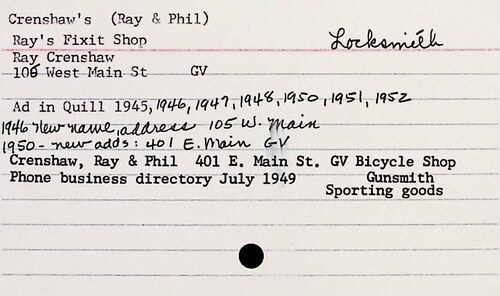 Crenshaw's (Ray & Phil)
Ray's Fixit Shop Locksmith
Ray Crenshaw
106 West Main St GV
Ad in Quill 1945, 1946, 1947, 1948, 1950, 1951, 1952
1946 New name, address 105 W. Main
1950 - new adds: 401 E. Main GV
Crenshaw, Ray & Phil 401 E. Main St. GV Bicycle Shop
Phone business directory July 1949 Gunsmith
Sporting goods